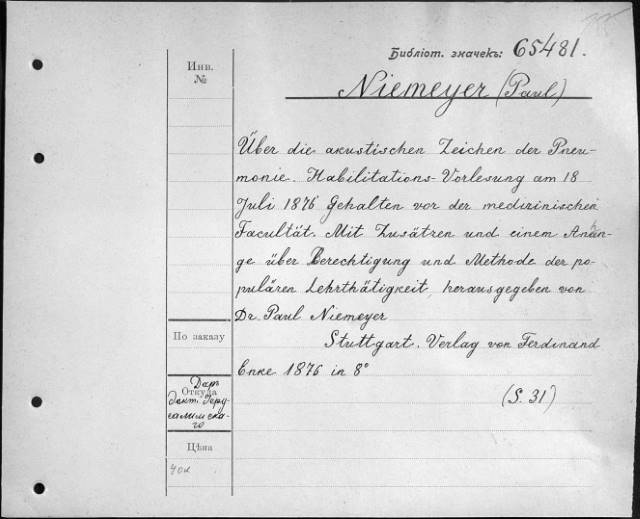 Библiот. значекъ: 65481.
Инв.
№
Niemeyer (Paul)
Über die akustischen Zeichen der Pneu-
monie. Habilitations-Vorlesung am 18
Juli 1876 gehalten vor der medizinischen
Facultät. Mit Zusätzen und einem Anhän-
ge über Berechtigung und Methode der po-
pulären Lehrthätigkeit, herausgegeben von
Dr. Paul Niemeyer
Stuttgart. Verlag von Ferdinand
Enke 1876 in 8°
(S. 31)
По заказу
Откуда
Даръ
докт. Iеру-
салимска-
го
Цѣна
40к